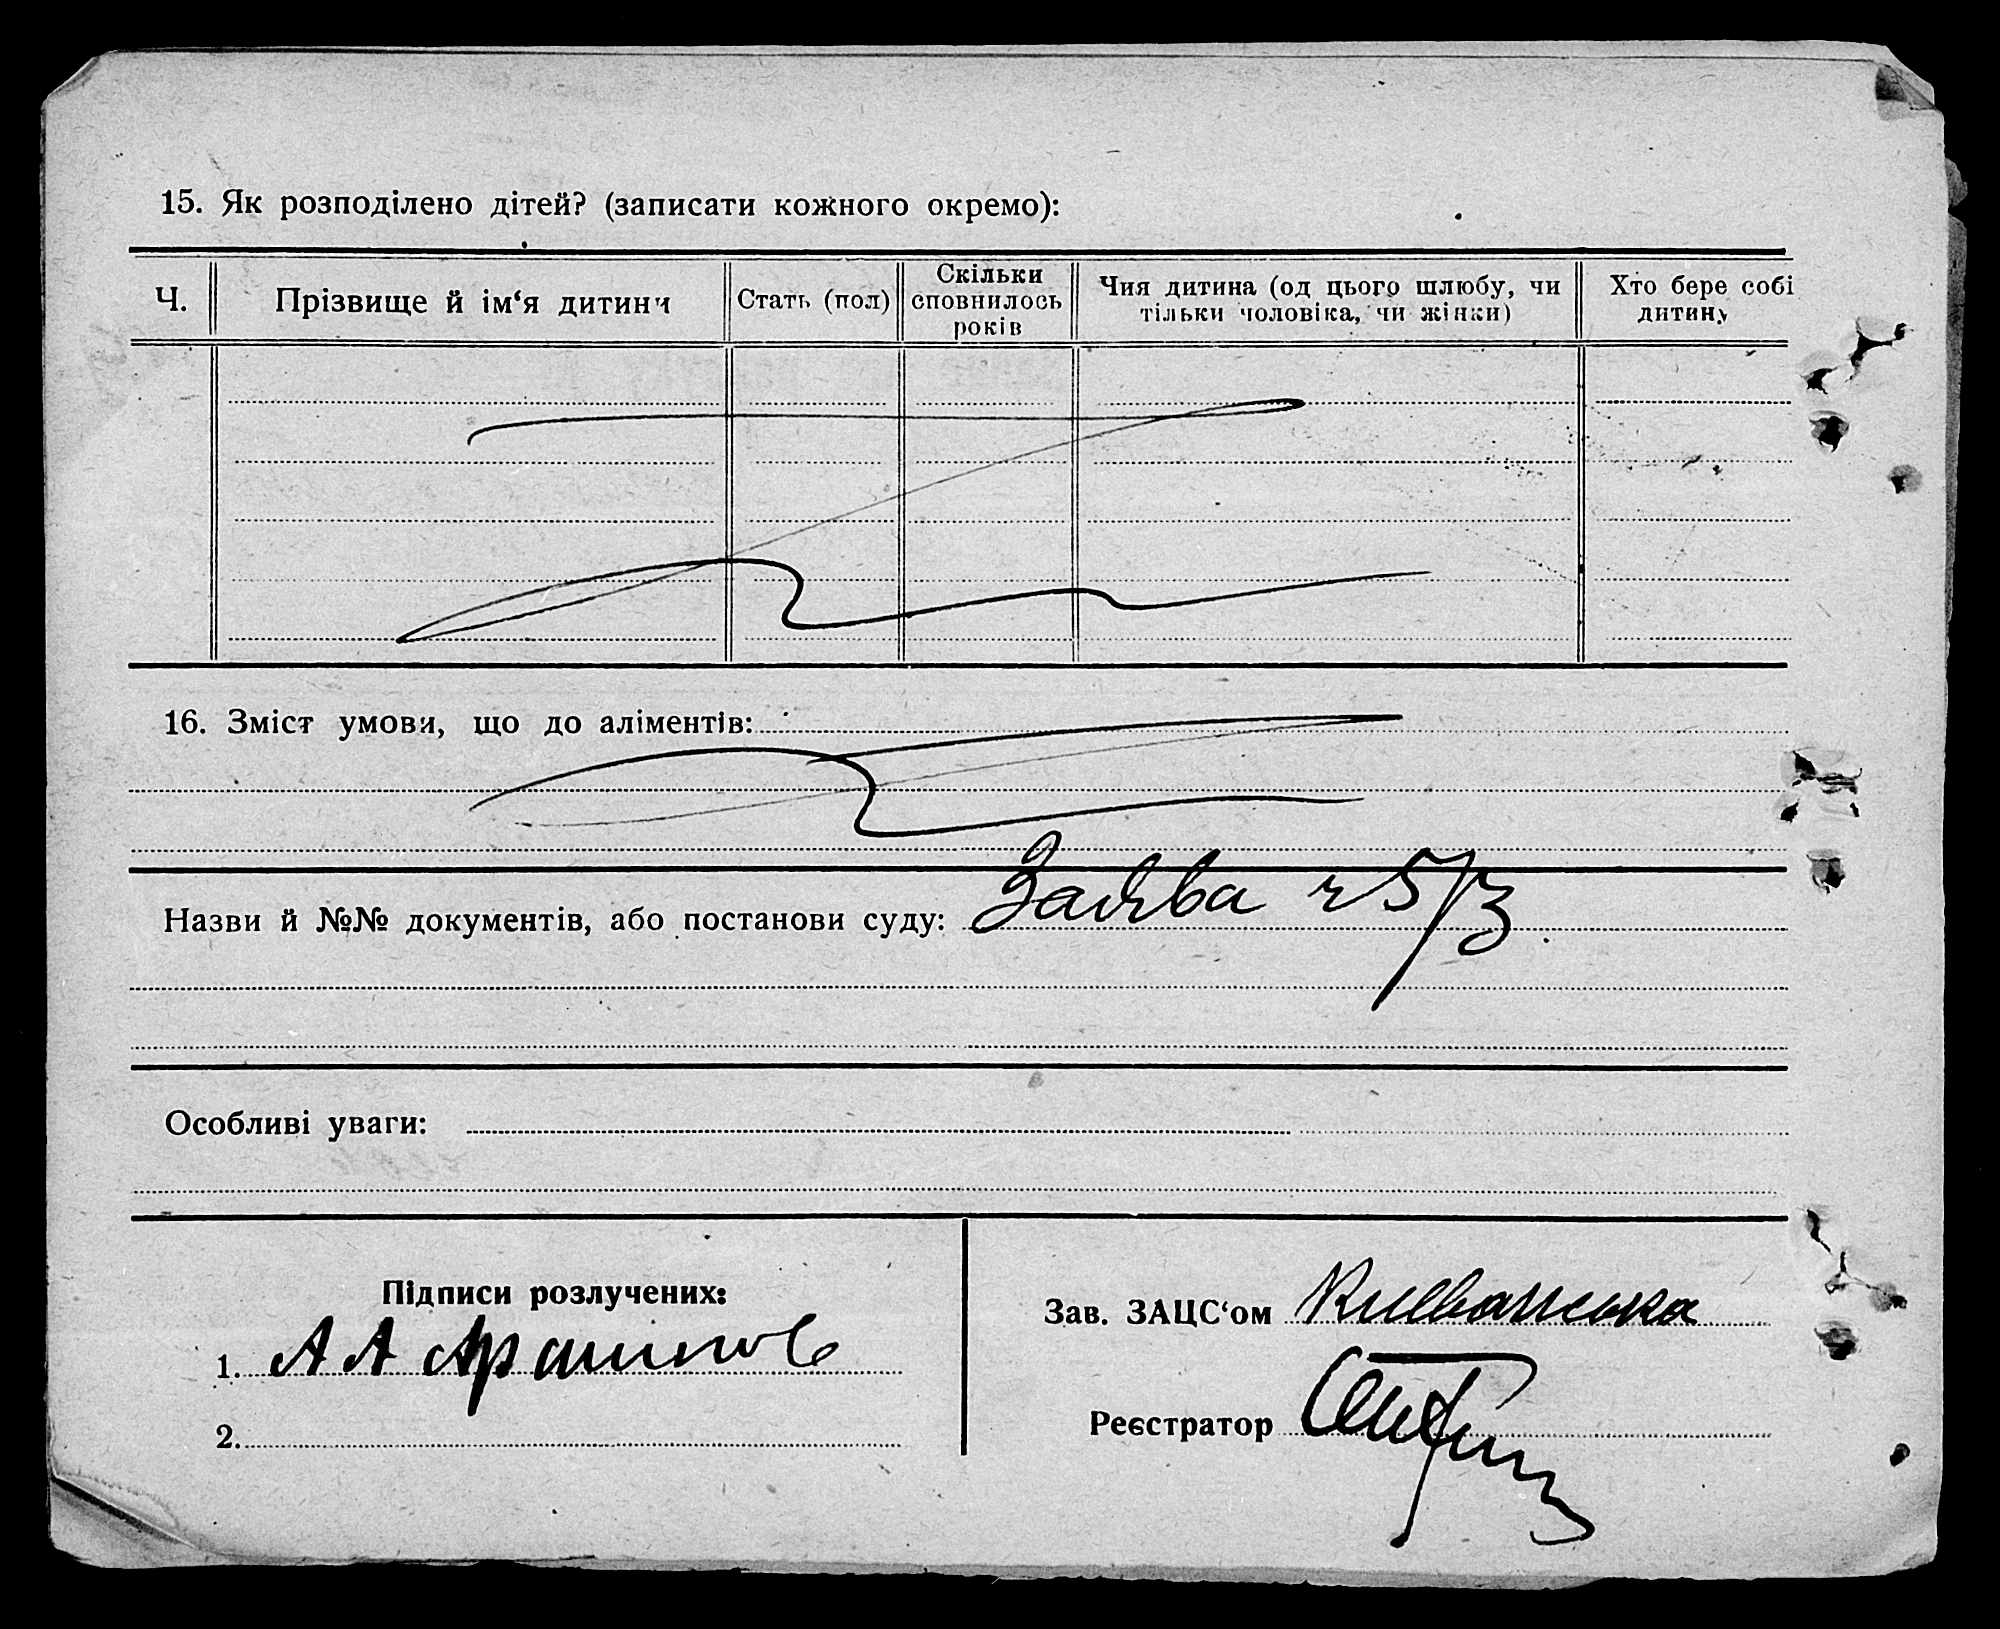 15. Як розподілено дітей? (записати кожного окремо):
Ч.
Прізвище й ім‘я дитини
Стать (пол)
Скільки
сповнилось
років
Чия дитина (од цього шлюбу, чи
тільки чоловіка, чи жінки)
Хто бере собі
дитину
16. Зміст умови, що до аліментів:
Назви й №№ документів, або постанови суду: Заява ч 5/3
Особливі уваги:
Підписи розлучених:
1. А А
2.
Зав. ЗАЦС‘ом
Реєстратор